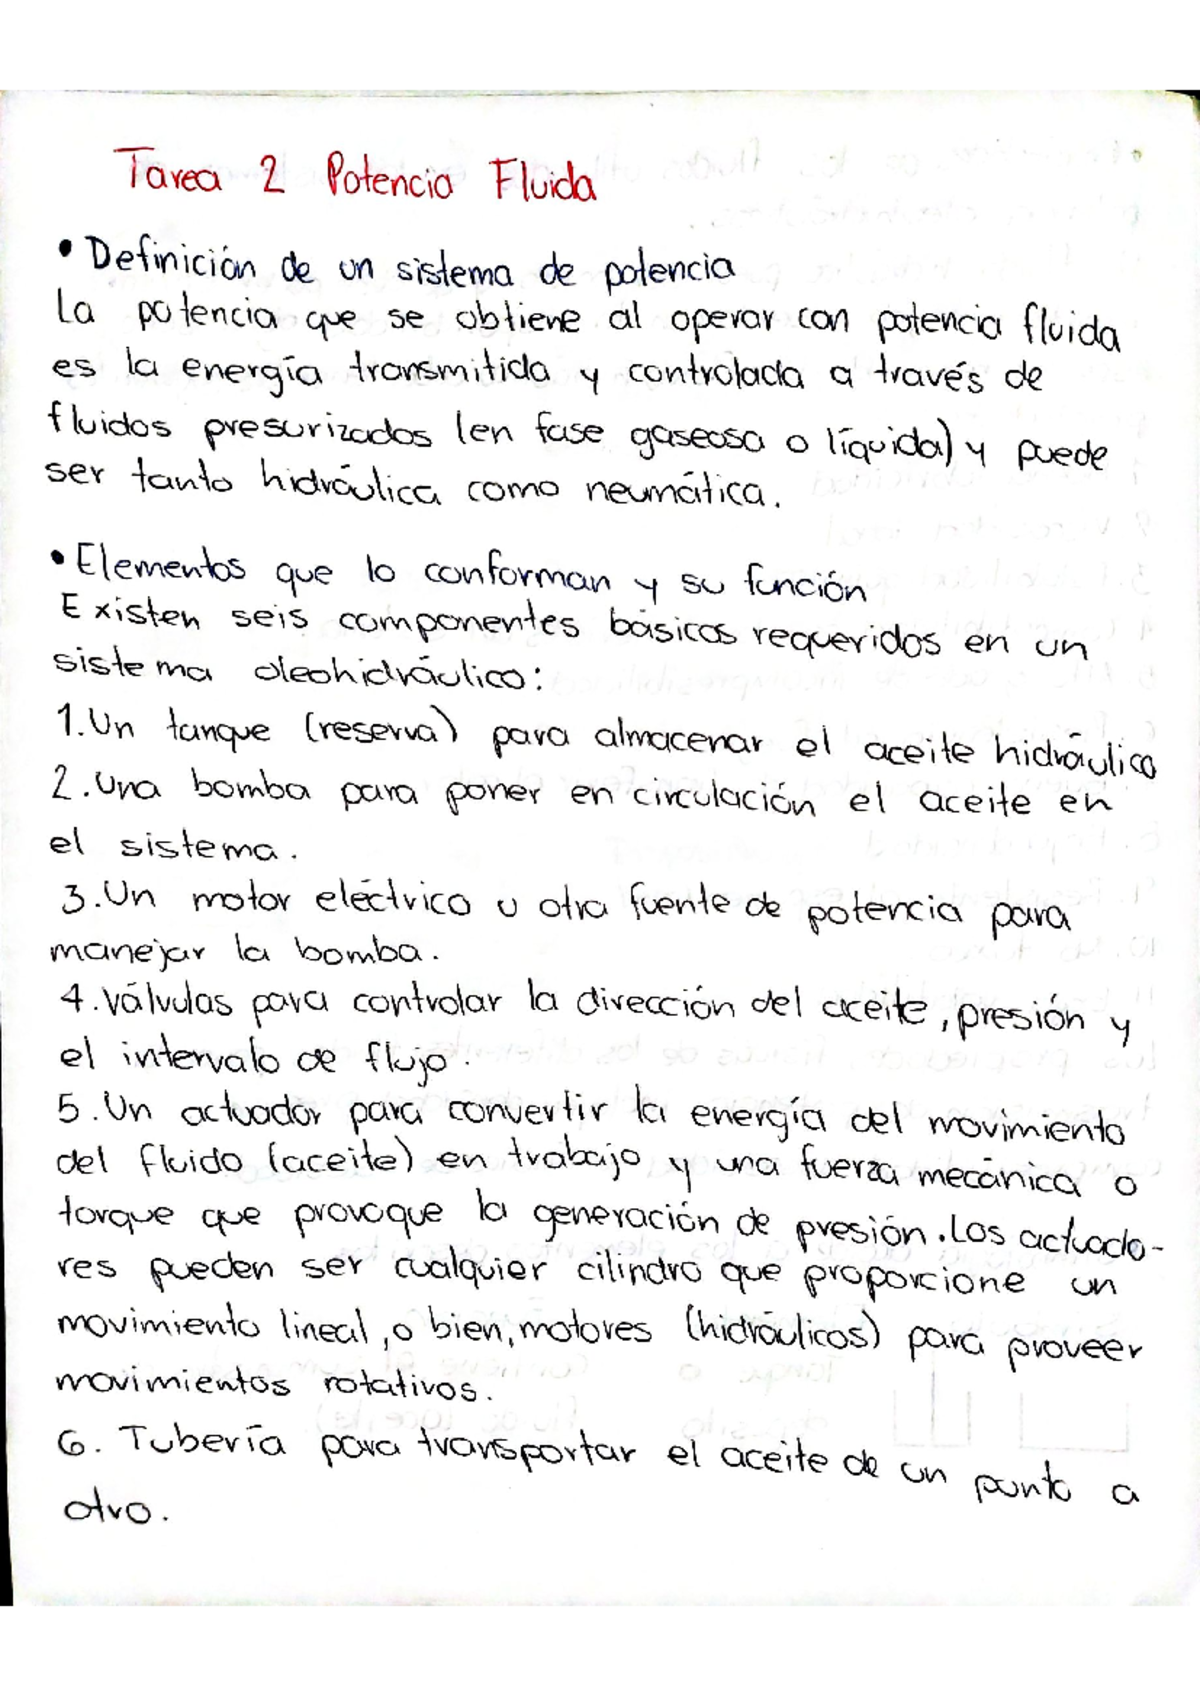 Tarea 2 Potencia Fluida
• Definición de un sistema de potencia
La potencia que se obtiene al operar con potencia fluida
es la energía transmitida y controlada a través de
fluidos presurizados (en fase gaseosa o líquida) y puede
ser tanto hidráulica como neumática.
• Elementos que lo conforman y su función
Existen seis componentes básicos requeridos en un
sistema oleohidráulico:
1. Un tanque (reserva) para almacenar el aceite hidráulico
2. Una bomba para poner en circulación el aceite en
el sistema.
3. Un motor eléctrico u otra fuente de potencia para
manejar la bomba.
4. Válvulas para controlar la dirección del aceite, presión y
el intervalo de flujo.
5. Un actuador para convertir la energía del movimiento
del fluido (aceite) en trabajo y una fuerza mecánica o
torque que provoque la generación de presión. Los actuado-
res pueden ser cualquier cilindro que proporcione un
movimiento lineal, o bien, motores (hidráulicos) para proveer
movimientos rotativos.
6. Tubería para transportar el aceite de un punto a
otro.